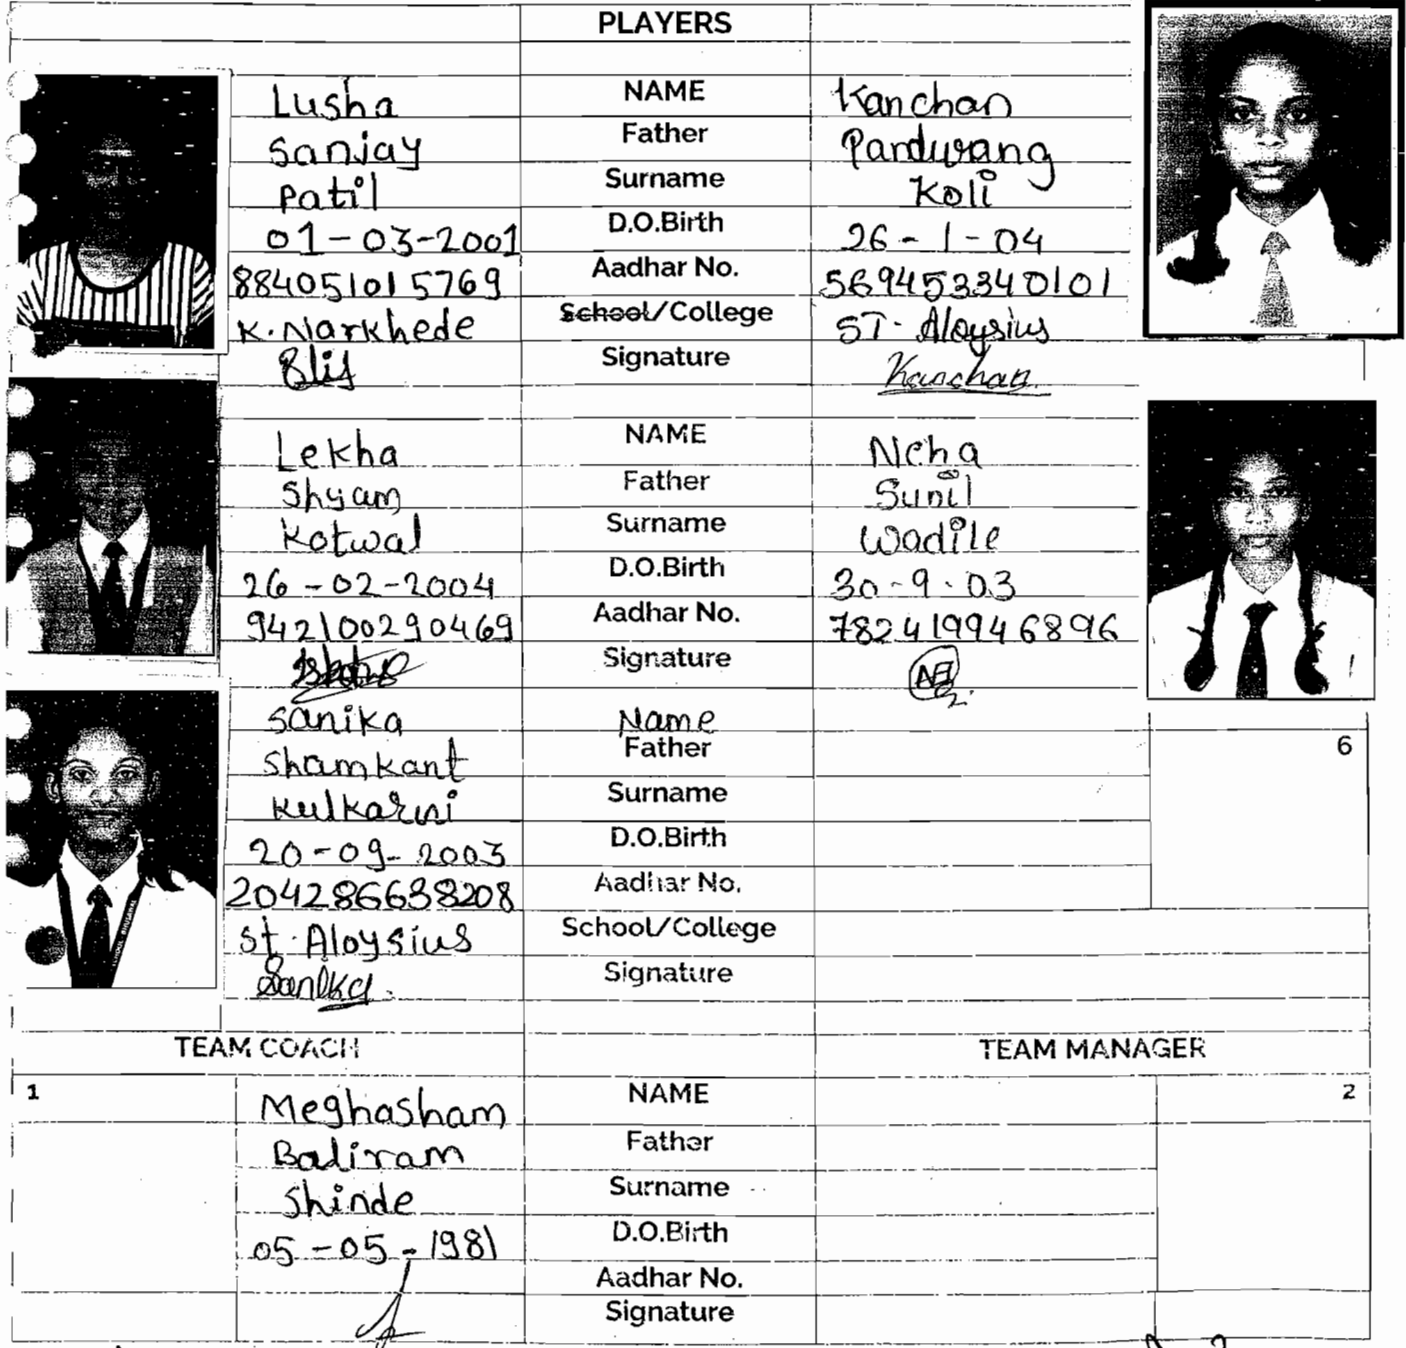 PLAYERS
Lusha NAME Kanchan
Sanjay Father Pandurang
Patil Surname Koli
01-03-2001 D.O.Birth 26-1-04
884051015769 Aadhar No. 569453340101
K. Narkhede School/College ST. Aloysius
Signature Kanchan
Lekha NAME Neha
Shyam Father Sunil
Kotwal Surname Wadile
26-02-2004 D.O.Birth 30-9-03
942100290469 Aadhar No. 782419946896
Signature
Sanika Name
Shamkant Father 6
Kulkarni Surname
20-09-2003 D.O.Birth
204286638208 Aadhar No.
St. Aloysius School/College
Sanika Signature
TEAM COACH TEAM MANAGER
1 Meghasham NAME 2
Baliram Father
Shinde Surname
05-05-1981 D.O.Birth
Aadhar No.
Signature